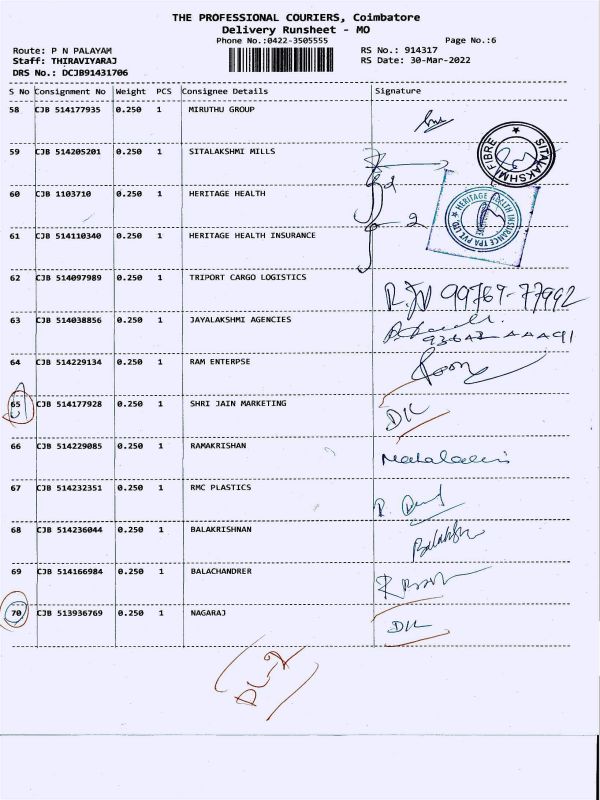 THE PROFESSIONAL COURIERS, Coimbatore
Delivery Runsheet - MO
Phone No.:0422-3505555
Page No.:6
Route: P N PALAYAM
RS No.: 914317
Staff: THIRAVIYARAJ
RS Date: 30-Mar-2022
DRS No.: DCJB91431706
S No Consignment No Weight PCS Consignee Details Signature
58 CJB 514177935 0.250 1 MIRUTHU GROUP
59 CJB 514205201 0.250 1 SITALAKSHMI MILLS
SITALAKSHMI FIBRE
60 CJB 1103710 0.250 1 HERITAGE HEALTH
HERITAGE HEALTH INSURANCE TPA PVT. LTD.
61 CJB 514110340 0.250 1 HERITAGE HEALTH INSURANCE
62 CJB 514097989 0.250 1 TRIPORT CARGO LOGISTICS 99769-77992
63 CJB 514038856 0.250 1 JAYALAKSHMI AGENCIES
64 CJB 514229134 0.250 1 RAM ENTERPSE
65 CJB 514177928 0.250 1 SHRI JAIN MARKETING DIL
66 CJB 514229085 0.250 1 RAMAKRISHAN
67 CJB 514232351 0.250 1 RMC PLASTICS
68 CJB 514236044 0.250 1 BALAKRISHNAN
69 CJB 514166984 0.250 1 BALACHANDRER
70 CJB 513936769 0.250 1 NAGARAJ DIL
DL-2